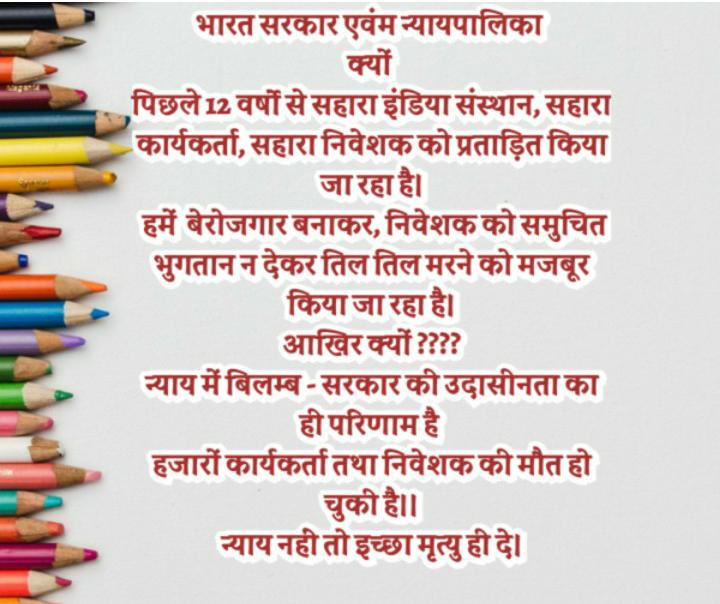 भारत सरकार एवंम न्यायपालिका
क्यों
पिछले 12 वर्षो से सहारा इंडिया संस्थान, सहारा
कार्यकर्ता, सहारा निवेशक को प्रताड़ित किया
जा रहा है।
हमें बेरोजगार बनाकर, निवेशक को समुचित
भुगतान न देकर तिल तिल मरने को मजबूर
किया जा रहा है।
आखिर क्यों ????
न्याय में बिलम्ब - सरकार की उदासीनता का
ही परिणाम है
हजारों कार्यकर्ता तथा निवेशक की मौत हो
चुकी है।।
न्याय नही तो इच्छा मृत्यु ही दे।